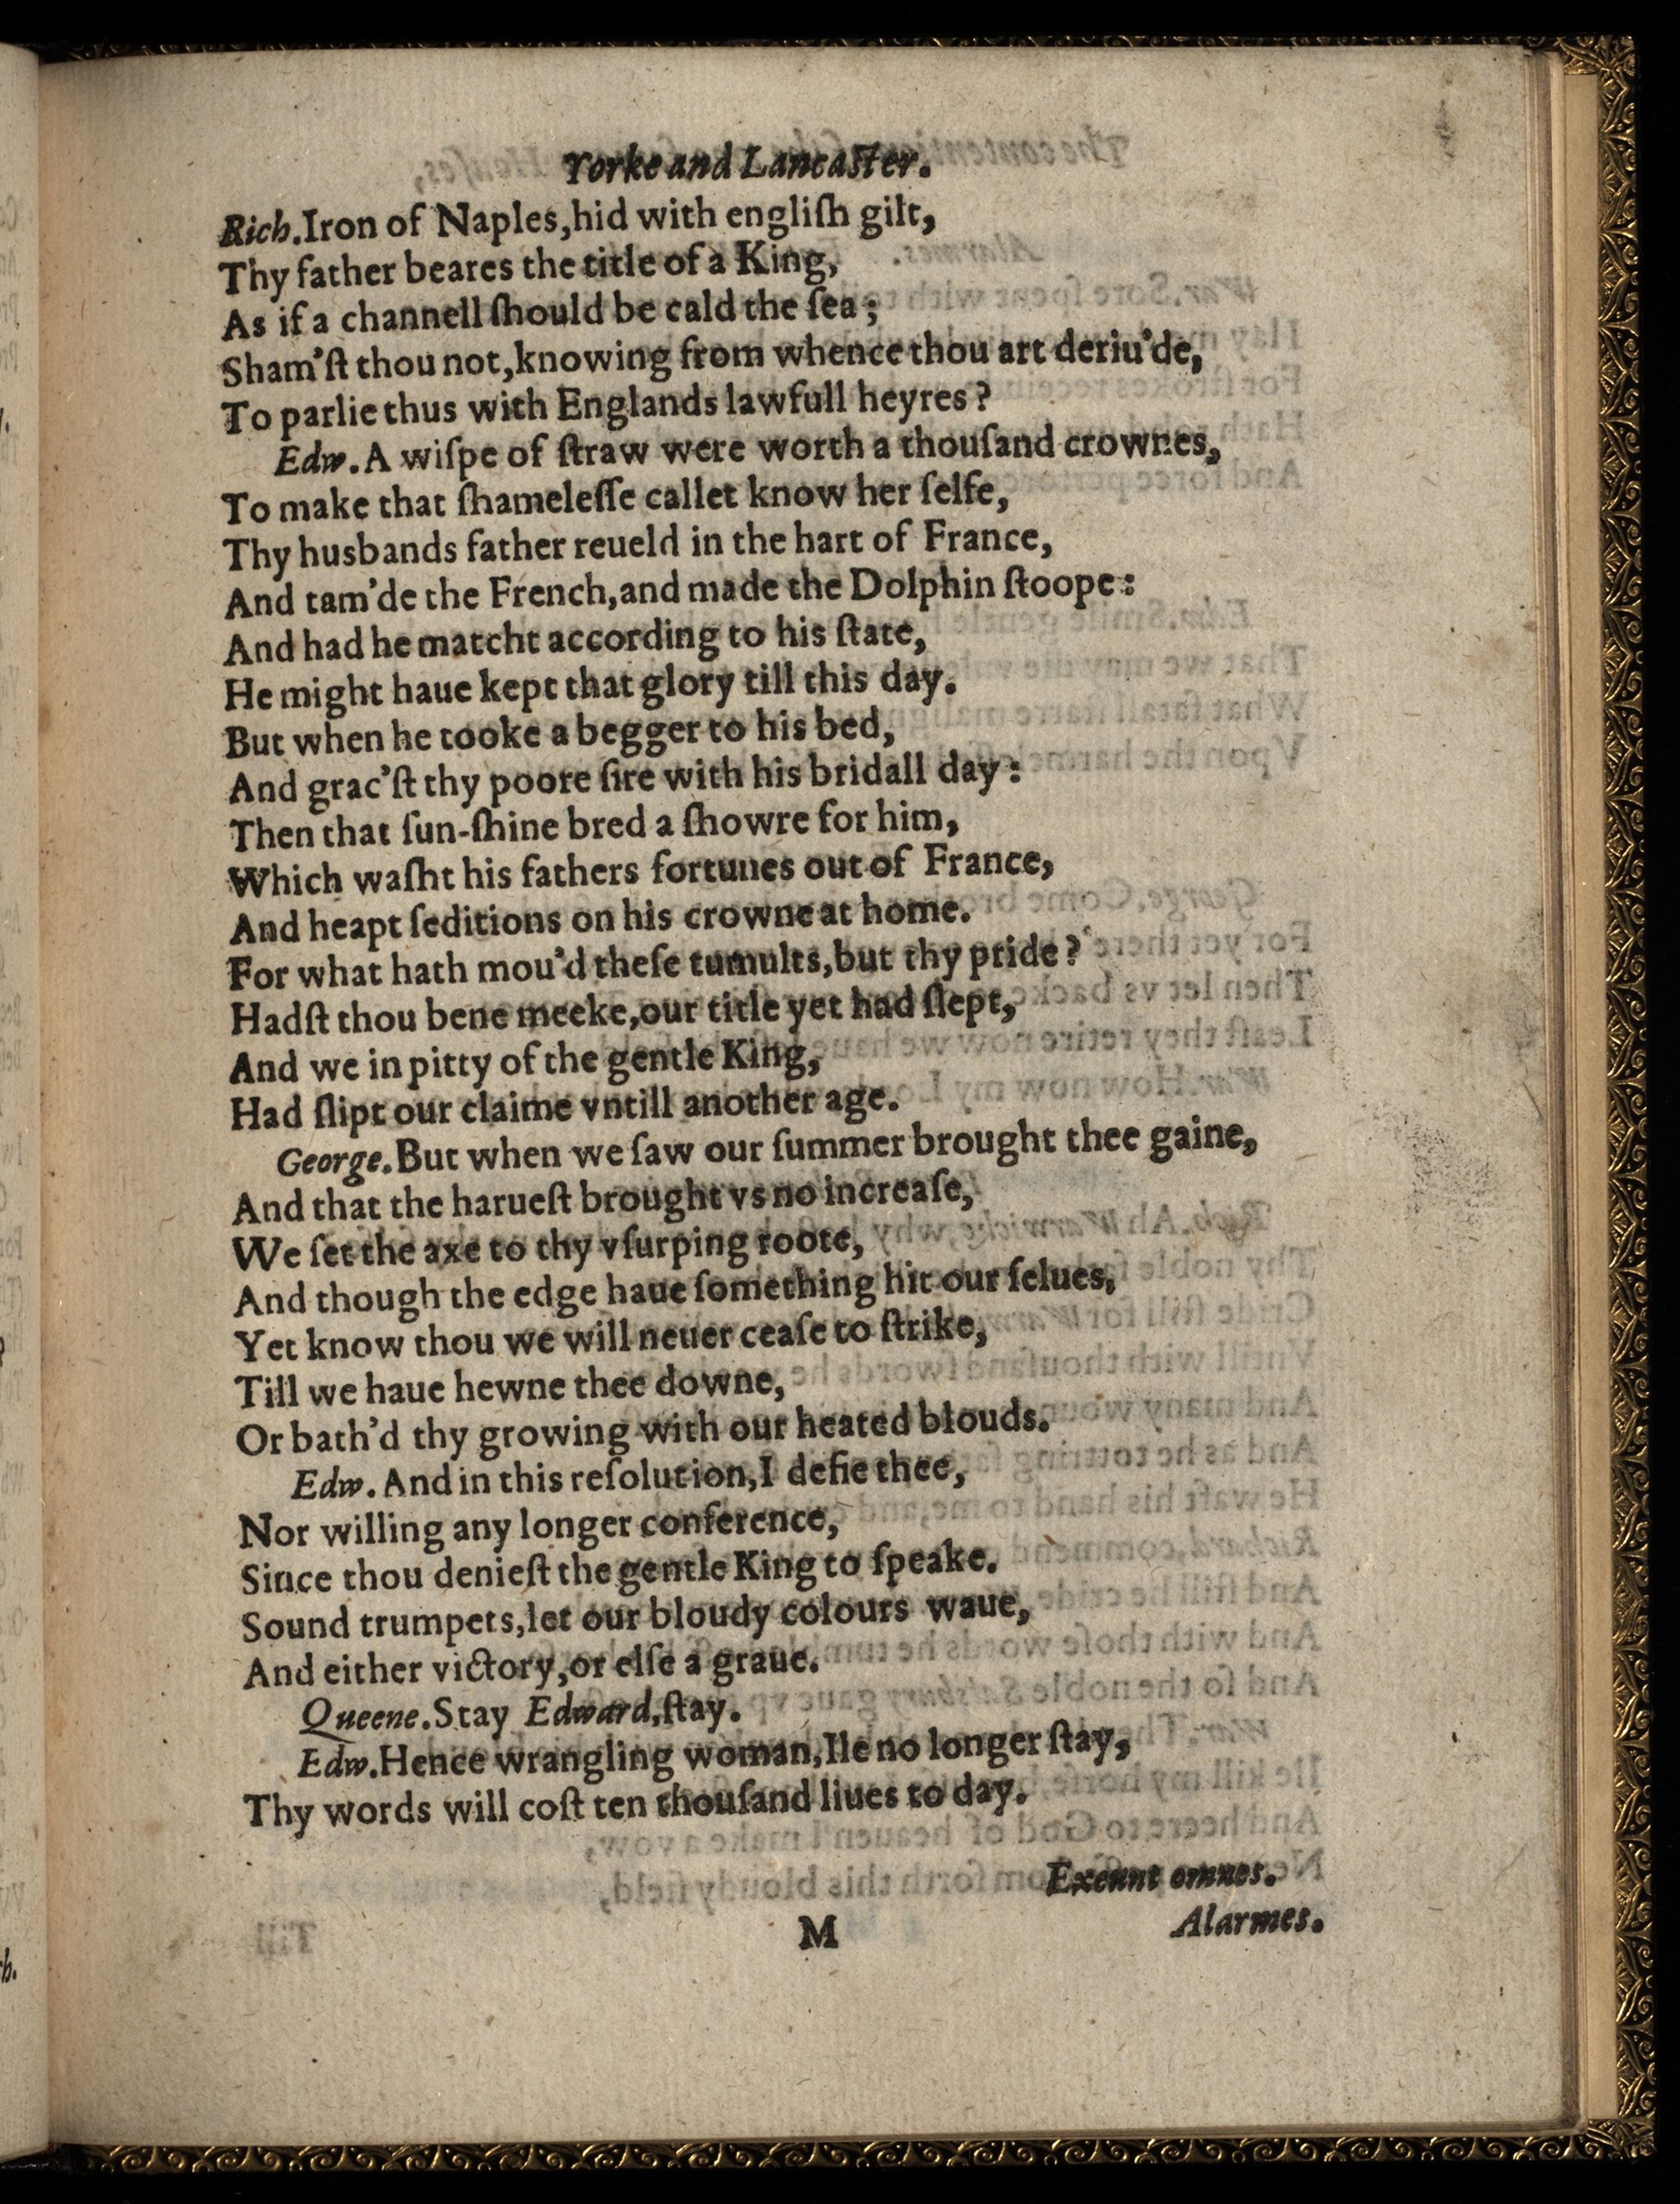 Yorke and Lancaſter.
Rich.Iron of Naples,hid with engliſh gilt,
Thy father beares the title of a King,
As if a channell ſhould be cald the ſea;
Sham'ſt thou not,knowing from whence thou art deriu'de,
To parlie thus with Englands lawfull heyres?
Edw.A wiſpe of ſtraw were worth a thouſand crownes,
To make that ſhameleſſe callet know her ſelfe,
Thy husbands father reueld in the hart of France,
And tam'de the French,and made the Dolphin ſtoope:
And had he matcht according to his ſtate,
He might haue kept that glory till this day.
But when he tooke a begger to his bed,
And grac'ſt thy poore ſire with his bridall day:
Then that ſun-ſhine bred a ſhowre for him,
Which waſht his fathers fortunes out of France,
And heapt ſeditions on his crowne at home.
For what hath mou'd theſe tumults,but thy pride?
Hadſt thou bene meeke,our title yet had ſlept,
And we in pitty of the gentle King,
Had ſlipt our claime vntill another age.
George.But when we ſaw our ſummer brought thee gaine,
And that the harueſt brought vs no increaſe,
We ſet the axe to thy vſurping roote,
And though the edge haue ſomething hit our ſelues,
Yet know thou we will neuer ceaſe to ſtrike,
Till we haue hewne thee downe,
Or bath'd thy growing with our heated blouds.
Edw. And in this reſolution,I defie thee,
Nor willing any longer conference,
Since thou denieſt the gentle King to ſpeake.
Sound trumpets,let our bloudy colours waue,
And either victory,or elſe a graue.
Queene.Stay Edward,ſtay.
Edw.Hence wrangling woman,Ile no longer ſtay,
Thy words will coſt ten thouſand liues to day.
Exeunt omnes.
M Alarmes.